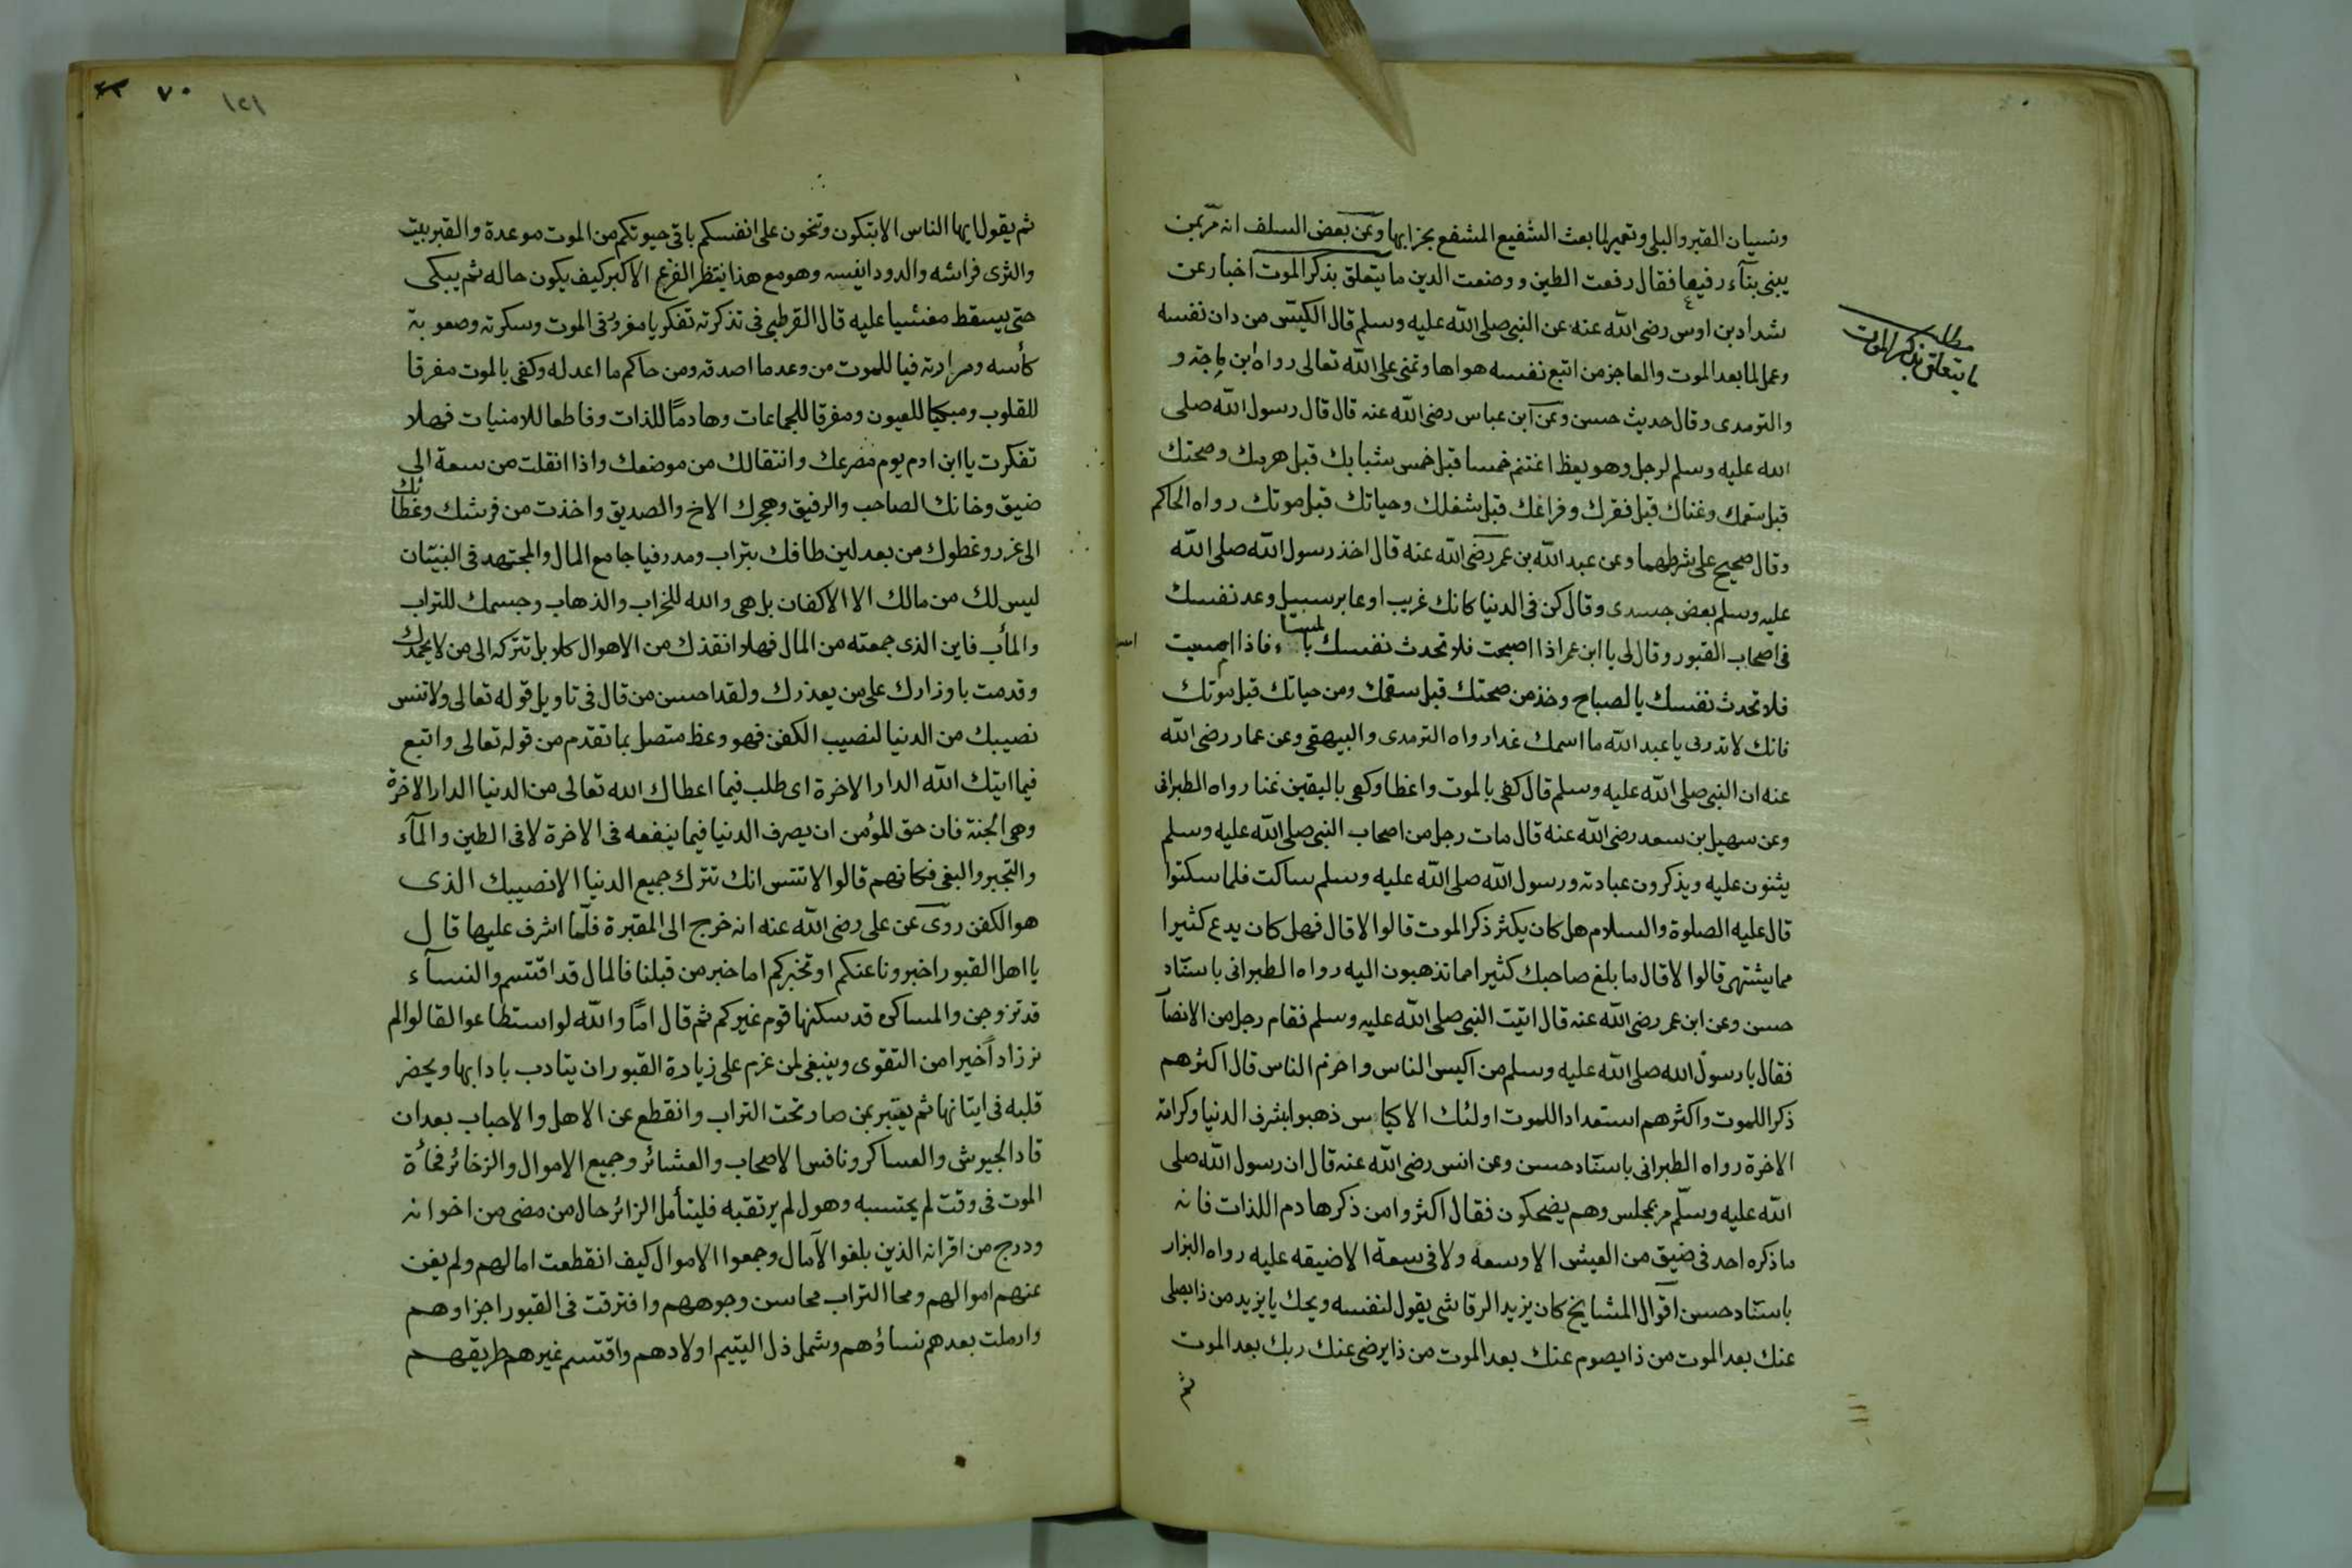 ونسيان القبر والبلى وتعمير لما بعث الشفيع المشفع بخرابها وعن بعض السلف انه مر بمن
يبنى بنآء رفيعا فقال رفعت الطين ووضعت الدين ما يتعلق بذكر الموت اخبار عن
مطلب
ما يتعلق بذكر الموت
شداد بن اوس رضى الله عنه عن النبى صلى الله عليه وسلم قال الكيّس من دان نفسه
وعمل لما بعد الموت والعاجز من اتبع نفسه هواها وتمنى على الله تعالى رواه ابن ماجة و
والترمدى وقال حديث حسن وعن ابن عباس رضى الله عنه قال قال رسول الله صلى
الله عليه وسلم لرجل وهو يعظ اغتنم خمسا قبل خمس شبابك قبل هرمك وصحتك
قبل سقمك وغناك قبل فقرك وفراغك قبل شغلك وحياتك قبل موتك رواه الحاكم
وقال صحيح على شرطهما وعن عبد الله بن عمر رضى الله عنه قال اخذ رسول الله صلى الله
عليه وسلم بعض جسدى وقال كن فى الدنيا كانك غريب او عابر سبيل وعد نفسك
فى اصحاب القبور وقال لى يا ابن عمر اذا اصبحت فلا تحدث نفسك بالمساء فاذا امسيت
فلا تحدث نفسك بالصباح وخذ من صحتك قبل سقمك ومن حياتك قبل موتك
فانك لا تدرى يا عبد الله ما اسمك غدا رواه الترمدى والبيهقى وعن عمار رضى الله
عنه ان النبى صلى الله عليه وسلم قال كفى بالموت واعظا وكفى باليقين غنا رواه الطبرانى
وعن سهيل بن سعد رضى الله عنه قال مات رجل من اصحاب النبى صلى الله عليه وسلم
يثنون عليه ويذكرون عبادته ورسول الله صلى الله عليه وسلم ساكت فلما سكتوا
قال عليه الصلوة والسلام هل كان يكثر ذكر الموت قالوا لا قال فهل كان يدع كثيرا
مما يشتهى قالوا لا قال ما بلغ صاحبك كثيرا مما تذهبون اليه رواه الطبرانى باسناد
حسن وعن ابن عمر رضى الله عنه قال اتيت النبى صلى الله عليه وسلم فقام رجل من الانصا
فقال يا رسول الله صلى الله عليه وسلم من اكيس الناس واحزم الناس قال اكثرهم
ذكرا للموت واكثرهم استعدادا للموت اولئك الاكياس ذهبوا بشرف الدنيا وكرامة
الاخرة رواه الطبرانى باسناد حسن وعن انس رضى الله عنه قال ان رسول الله صلى
الله عليه وسلّم مر بمجلس وهم يضحكون فقال اكثروا من ذكر هادم اللذات فانه
ما ذكره احد فى ضيق من العيش الا وسعه ولا فى سعة الا ضيقه عليه رواه البزار
باسناد حسن اقوال المشايخ كان يزيد الرقاشى يقول لنفسه ويحك يا يزيد من ذا يصلى
عنك بعد الموت من ذا يصوم عنك بعد الموت من ذا يرضى عنك ربك بعد الموت
ثم
٧٠ ١٢١
ثم يقول ايها الناس الا تبكون وتنحون على انفسكم باقى حيوتكم من الموت موعدة والقبر بيته
والثرى فراشه والدود انيسه وهو مع هذا ينتظر الفزع الاكبر كيف يكون حاله ثم يبكى
حتى يسقط مغشيا عليه قال القرطبى فى تذكرته تفكر يا مغرور فى الموت وسكرته وصعوبة
كأسه ومرارته فيا للموت من وعد ما اصدقه ومن حاكم ما اعدله وكفى بالموت مفرقا
للقلوب ومبكيا للعيون ومفرقا للجماعات وهادمًا للذات وقاطعا للامنيات فهلا
تفكرت يا ابن ادم يوم مصرعك وانتقالك من موضعك واذا انقلت من سعة الى
ضيق وخانك الصاحب والرفيق وهجرك الاخ والصديق واخذت من فرشك وغطائك
الى غرر وغطوك من بعد لين طافك بتراب ومدر فيا جامع المال والمجتهد فى البنيّان
ليس لك من مالك الا الاكفان بل هى والله للخراب والذهاب وجسمك للتراب
والمأب فاين الذى جمعته من المال فهلا انقذك من الاهوال كلا بل تتركه الى من لا يحمدك
وقدمت باوزارك على من يعذرك ولقد احسن من قال فى تاويل قوله تعالى ولا تنس
نصيبك من الدنيا لنصيب الكفن فهو وعظ متصل بما تقدم من قوله تعالى واتبع
فيما اتيك الله الدار الاخرة اى طلب فيما اعطاك الله تعالى من الدنيا الدار الاخرة
وهى الجنة فان حق المؤمن ان يصرف الدنيا فيما ينفعه فى الاخرة لا فى الطين والمآء
والتجبر والبغى فكانهم قالوا لا تنس انك تترك جميع الدنيا الا نصيبك الذى
هو الكفن روى عن على رضى الله عنه انه خرج الى المقبرة فلمّا اشرف عليها قال
يا اهل القبور اخبرونا عنكم او تخبركم اما خبر من قبلنا فالمال قد اقتسم والنسآء
قد تزوجن والمساكن قد سكنها قوم غيركم ثم قال امّا والله لو استطاعوا لقالوا لم
نر زادًا خيرا من التقوى وينبغى لمن عزم على زيادة القبور ان يتادب بادابها ويحضر
قلبه فى ايتانها ثم يعتبر بمن صار تحت التراب وانقطع عن الاهل والاحباب بعد ان
قاد الجيوش والعساكر ونافس الاصحاب والعشائر وجميع الاموال والزخائر فجأة
الموت فى وقت لم يحتسبه وهول لم يرتقبه فليتأمل الزائر حال من مضى من اخوانه
ودرج من اقرانه الذين بلغوا الآمال وجمعوا الاموال كيف انقطعت امالهم ولم يغن
عنهم اموالهم ومحا التراب محاسن وجوههم وافترقت فى القبور اجزاوهم
وارملت بعدهم نساؤهم وشمل ذل اليتيم اولادهم واقتسم غيرهم طريقهم